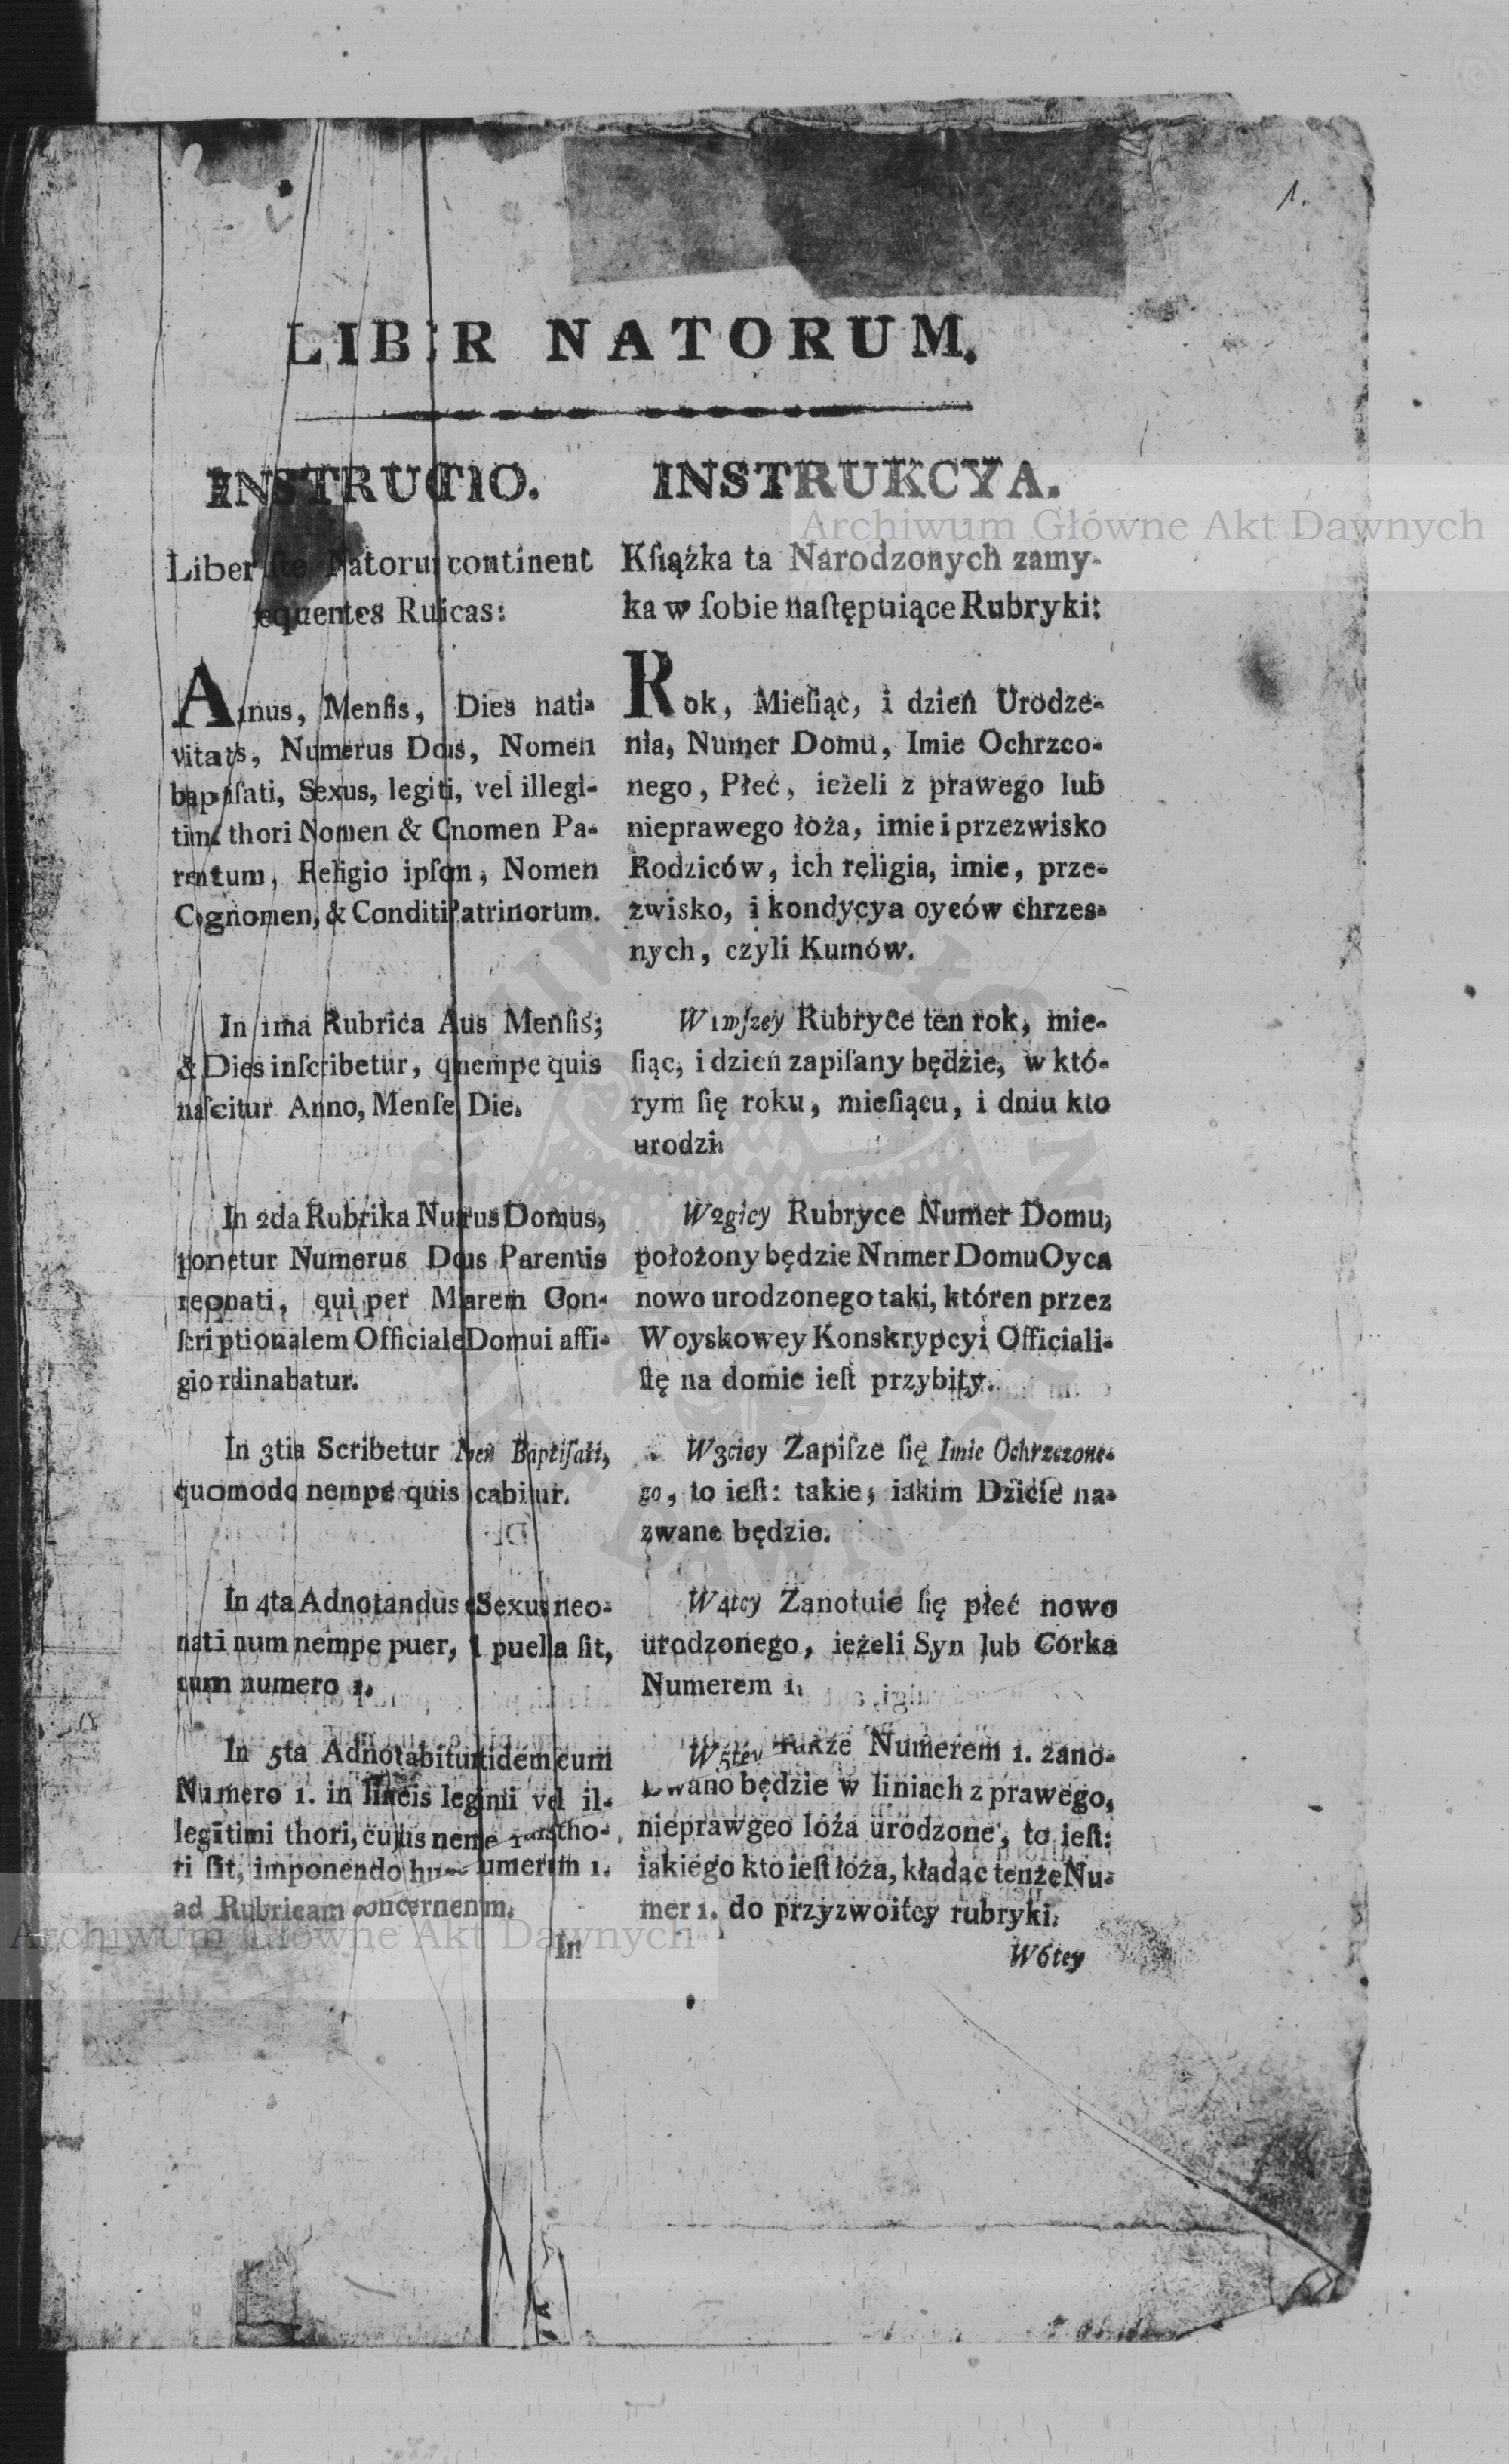 1.
LIBER NATORUM.
INSTRUCTIO.
Liber Natoru continent
sequentes Ruicas:
Annus, Menſis, Dies nati-
vitatis, Numerus Dous, Nomen
baptiſati, Sexus, legiti, vel illegi-
timi thori Nomen & Cnomen Pa-
rentum, Religio ipſon, Nomen
Cognomen, & Conditi Patrinorum.
In 1ma Rubrica Aus Menſis;
& Dies inſcribetur, qnempe quis
naſcitur Anno, Menſe Die.
In 2da Rubrika Nurus Domus,
ponetur Numerus Dous Parentis
reonati, qui per Marem Con-
ſcriptionalem Officiale Domui affi-
gio rdinabatur.
In 3tia Scribetur Nen Baptiſati,
quomodo nempe quis cabitur.
In 4ta Adnotandus e Sexus neo-
nati num nempe puer, l puella ſit,
cum numero 1.
In 5ta Adnotabitur itidem cum
Numero 1. in lineis leginii vel il-
legitimi thori, cujus neme tho-
ri ſit, imponendo umerum 1.
ad Rubricam concernenm.
In
INSTRUKCYA.
Kſiążka ta Narodzonych zamy-
ka w ſobie naſtępuiące Rubryki:
Rok, Mieſiąc, i dzień Urodze-
nia, Numer Domu, Imie Ochrzco-
nego, Płeć, ieżeli z prawego lub
nieprawego łoża, imie i przezwisko
Rodziców, ich religia, imie, prze-
zwisko, i kondycya oyców chrzes-
nych, czyli Kumów.
W 1wſzey Rubryce ten rok, mie-
ſiąc, i dzień zapiſany będzie, w któ-
rym ſię roku, mieſiącu, i dniu kto
urodzi.
W 2giey Rubryce Numer Domu,
położony będzie Nnmer Domu Oyca
nowo urodzonego taki, któren przez
Woyskowey Konskrypcyi Officiali-
ſtę na domie ieſt przybity.
W 3ciey Zapiſze ſię Imie Ochrzczone-
go, to ieſt: takie, iakim Dziécie na-
zwane będzie.
W 4tey Zanotuie ſię płeć nowo
urodzonego, ieżeli Syn lub Córka
Numerem 1.
W 5tey także Numerem 1. zano-
towano będzie w liniach z prawego,
nieprawgeo lóża urodzone, to ieſt:
iakiego kto ieſt łoża, kładąc tenże Nu-
mer 1. do przyzwoitey rubryki.
W 6tey
Archiwum Główne Akt Dawnych
Archiwum Główne Akt Dawnych